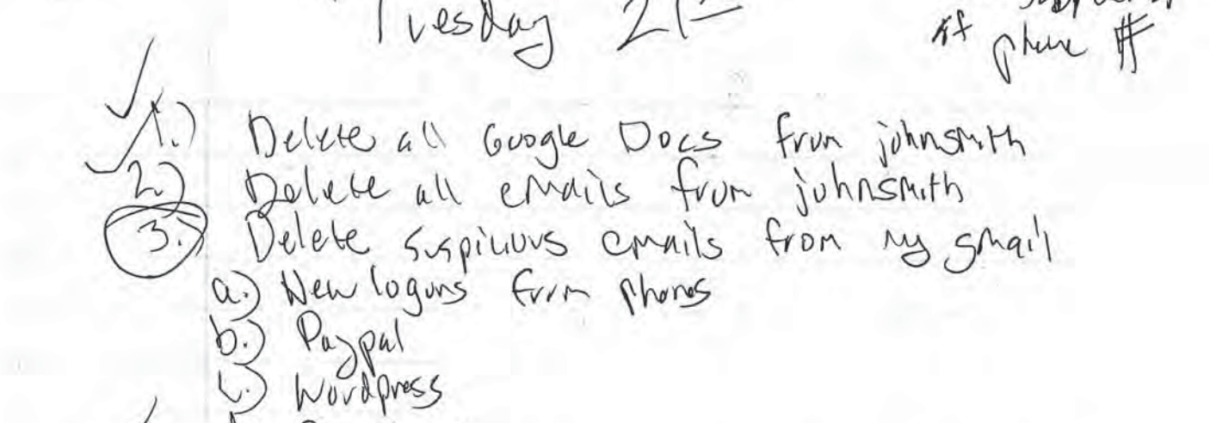 Tuesday 21st
phone #
1.) Delete all Google Docs from johnsmith
2.) Delete all emails from johnsmith
3.) Delete suspicious emails from my gmail
a.) New logons from phones
b.) Paypal
c.) Wordpress